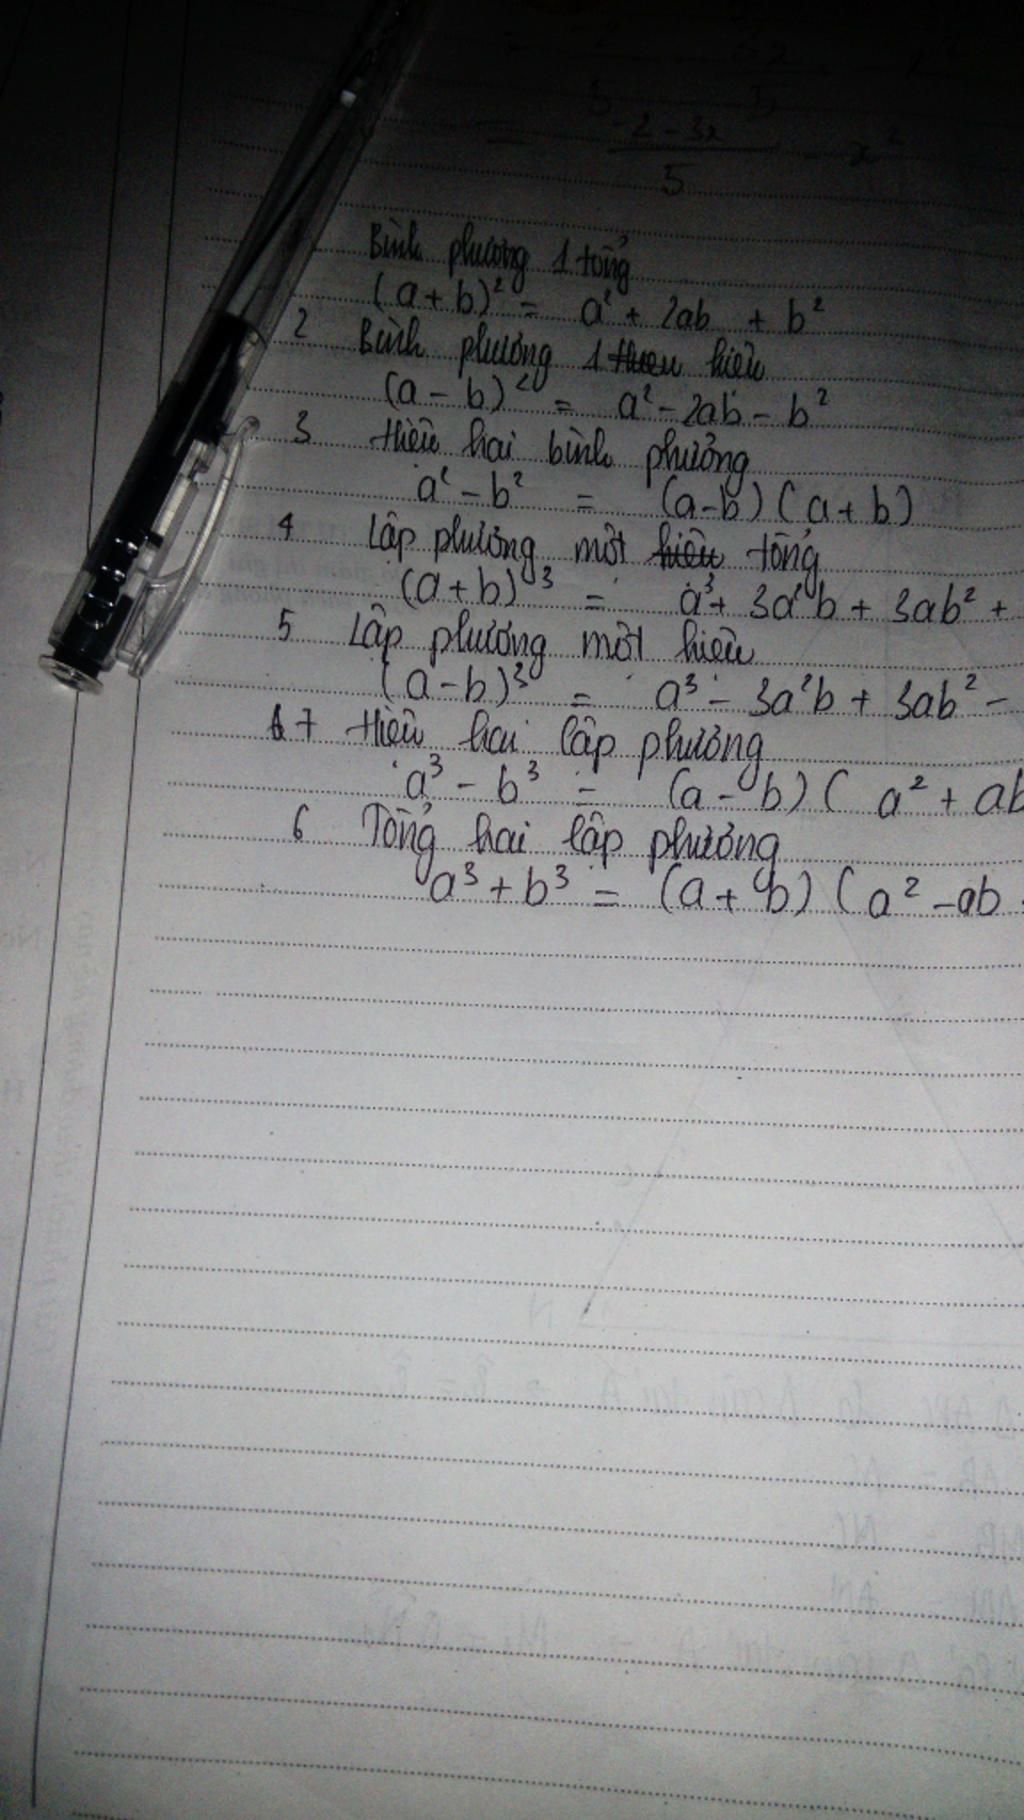 2 - 3x / 5 - x²
Bình phương 1 tổng
(a + b)² = a² + 2ab + b²
2 Bình phương 1 hiệu
(a - b)² = a² - 2ab - b²
3 Hiệu hai bình phương
a² - b² = (a - b) (a + b)
4 Lập phương một tổng
(a + b)³ = a³ + 3a²b + 3ab² +
5 Lập phương một hiệu
(a - b)³ = a³ - 3a²b + 3ab² -
7 Hiệu hai lập phương
a³ - b³ = (a - b) ( a² + ab
6 Tổng hai lập phương
a³ + b³ = (a + b) ( a² - ab